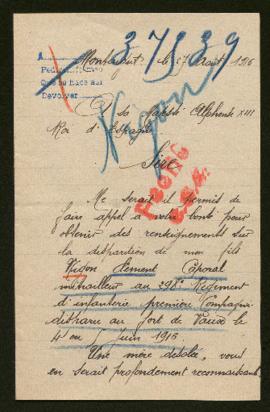 37539
Montaigut le 17 Août 1916
A
Devolver
A Sa Majesté Alphonse XIII
Roi d'Espagne
Nigon
Sire
Me serait il permis de
faire appel à votre bonté pour
obtenir des renseignements sur
la disparition de mon fils
Nigon Clement Caporal
mitrailleur au 298e Regiment
d'infanterie première Compagnie
disparu au fort de Vaux le
4 Juin 1916
Une mère désolée, vous
en serait profondement reconnaissant